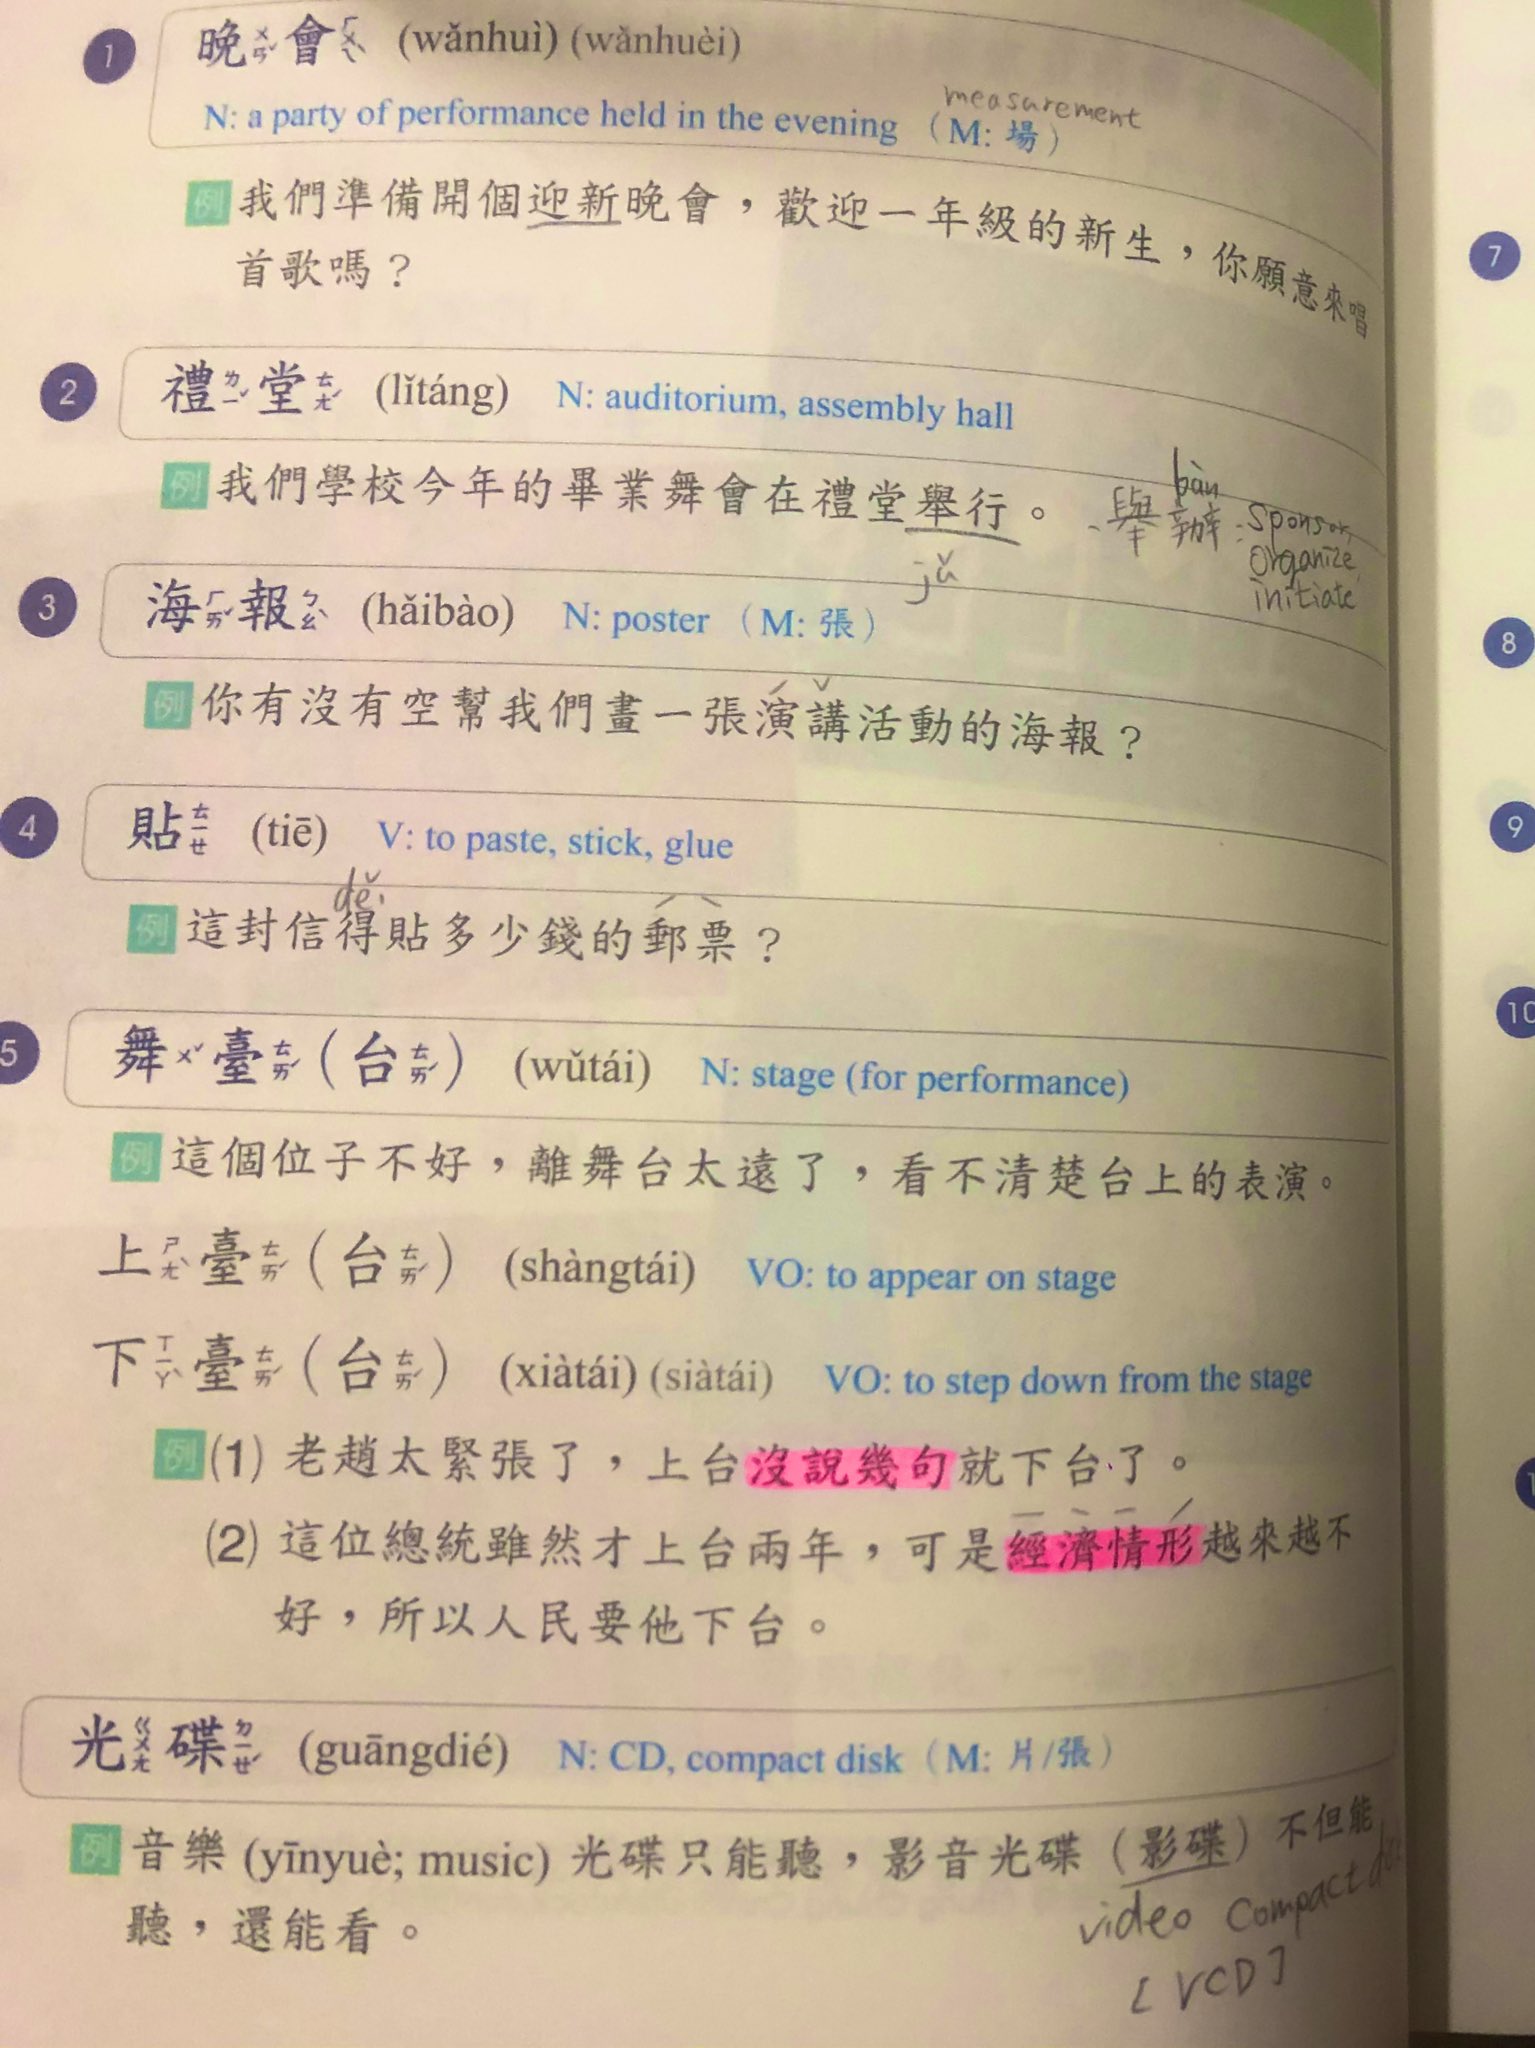 1 晚ㄨㄢˇ會ㄏㄨㄟˋ (wǎnhuì) (wǎnhuèi)
measurement
N: a party of performance held in the evening （M: 場）
例 我們準備開個迎新晚會，歡迎一年級的新生，你願意來唱
首歌嗎？
2 禮ㄌㄧˇ堂ㄊㄤˊ (lǐtáng) N: auditorium, assembly hall
例 我們學校今年的畢業舞會在禮堂舉行。
jǔ
bàn
舉辦: sponsor,
organize,
initiate
3 海ㄏㄞˇ報ㄅㄠˋ (hǎibào) N: poster （M: 張）
例 你有沒有空幫我們畫一張演講活動的海報？
4 貼ㄊㄧㄝ (tiē) V: to paste, stick, glue
děi
例 這封信得貼多少錢的郵票？
5 舞ㄨˇ臺ㄊㄞˊ（台ㄊㄞˊ） (wǔtái) N: stage (for performance)
例 這個位子不好，離舞台太遠了，看不清楚台上的表演。
上ㄕㄤˋ臺ㄊㄞˊ（台ㄊㄞˊ） (shàngtái) VO: to appear on stage
下ㄒㄧㄚˋ臺ㄊㄞˊ（台ㄊㄞˊ） (xiàtái) (siàtái) VO: to step down from the stage
例 (1) 老趙太緊張了，上台沒說幾句就下台了。
(2) 這位總統雖然才上台兩年，可是經濟情形越來越不
好，所以人民要他下台。
光ㄍㄨㄤ碟ㄉㄧㄝˊ (guāngdié) N: CD, compact disk（M: 片/張）
例 音樂 (yīnyuè; music) 光碟只能聽，影音光碟（影碟）不但能
聽，還能看。
video compact
[VCD]
7
8
9
10